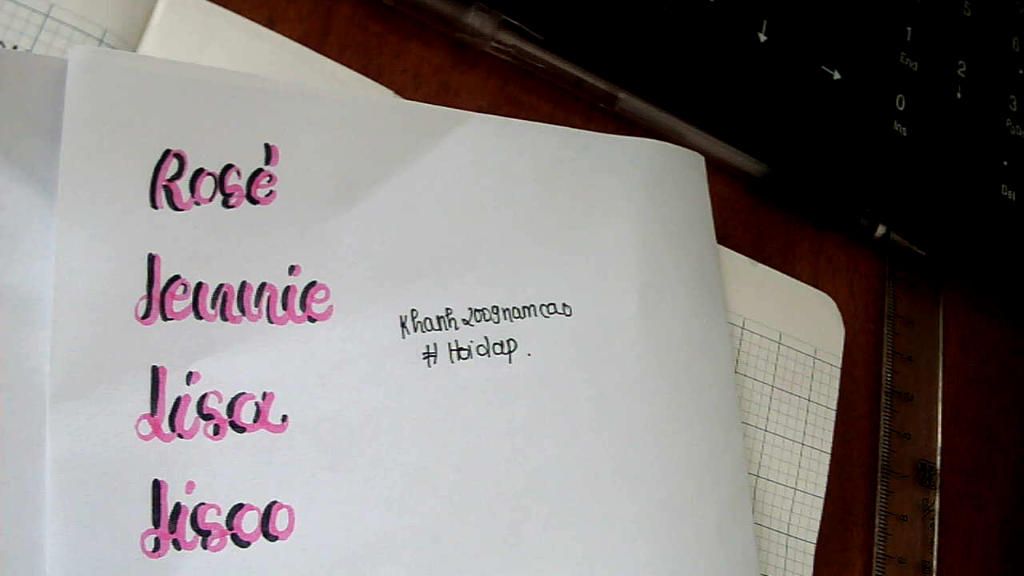 Rosé
Jennie
Lisa
Jisoo
Khanh2009namcao
# Hoidap.
1
End
2
0
Ins
3
Del